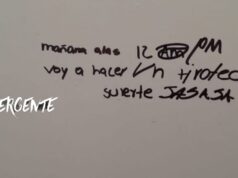 mañana alas 12 PM
voy a hacer Un tirotec
suerte JASAJA
ERGENTE